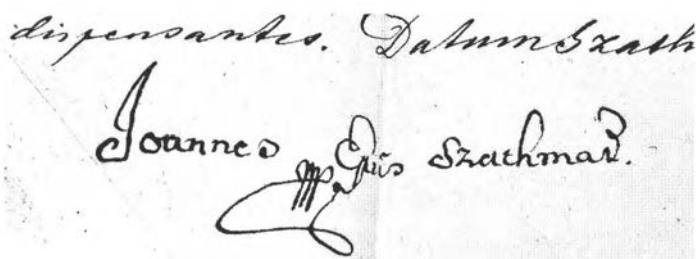 dispensantes. Datum Szath
Joannes Epũs Szathmar.